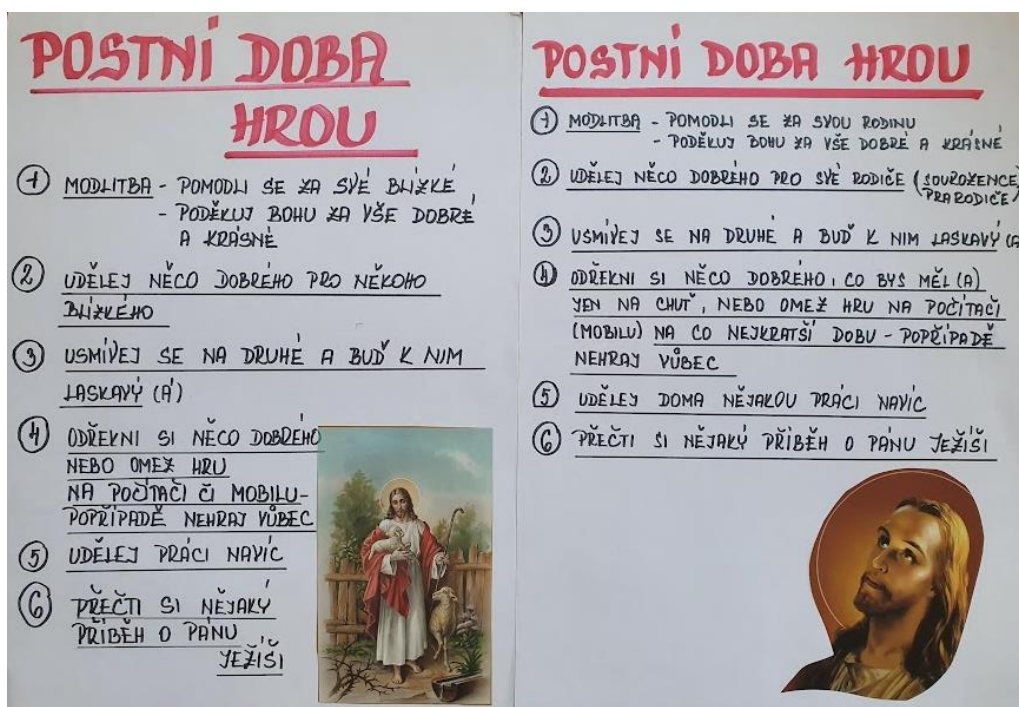 POSTNÍ DOBA
HROU
1 MODLITBA - POMODLI SE ZA SVÉ BLÍZKÉ
- PODĚKUJ BOHU ZA VŠE DOBRÉ
A KRÁSNÉ
2 UDĚLEJ NĚCO DOBRÉHO PRO NĚKOHO
BLÍZKÉHO
3 USMÍVEJ SE NA DRUHÉ A BUĎ K NIM
LASKAVÝ (Á)
4 ODŘEKNI SI NĚCO DOBRÉHO
NEBO OMEZ HRU
NA POČÍTAČI ČI MOBILU-
POPŘÍPADĚ NEHRAJ VŮBEC
5 UDĚLEJ PRÁCI NAVÍC
6 PŘEČTI SI NĚJAKÝ
PŘÍBĚH O PÁNU
JEŽÍŠI
POSTNÍ DOBA HROU
1 MODLITBA - POMODLI SE ZA SVOU RODINU
- PODĚKUJ BOHU ZA VŠE DOBRÉ A KRÁSNÉ
2 UDĚLEJ NĚCO DOBRÉHO PRO SVÉ RODIČE (SOUROZENCE
PRARODIČE)
3 USMÍVEJ SE NA DRUHÉ A BUĎ K NIM LASKAVÝ (Á
4 ODŘEKNI SI NĚCO DOBRÉHO, CO BYS MĚL (A)
JEN NA CHUŤ, NEBO OMEZ HRU NA POČÍTAČI
(MOBILU) NA CO NEJKRATŠÍ DOBU - POPŘÍPADĚ
NEHRAJ VŮBEC
5 UDĚLEJ DOMA NĚJAKOU PRÁCI NAVÍC
6 PŘEČTI SI NĚJAKÝ PŘÍBĚH O PÁNU JEŽÍŠI